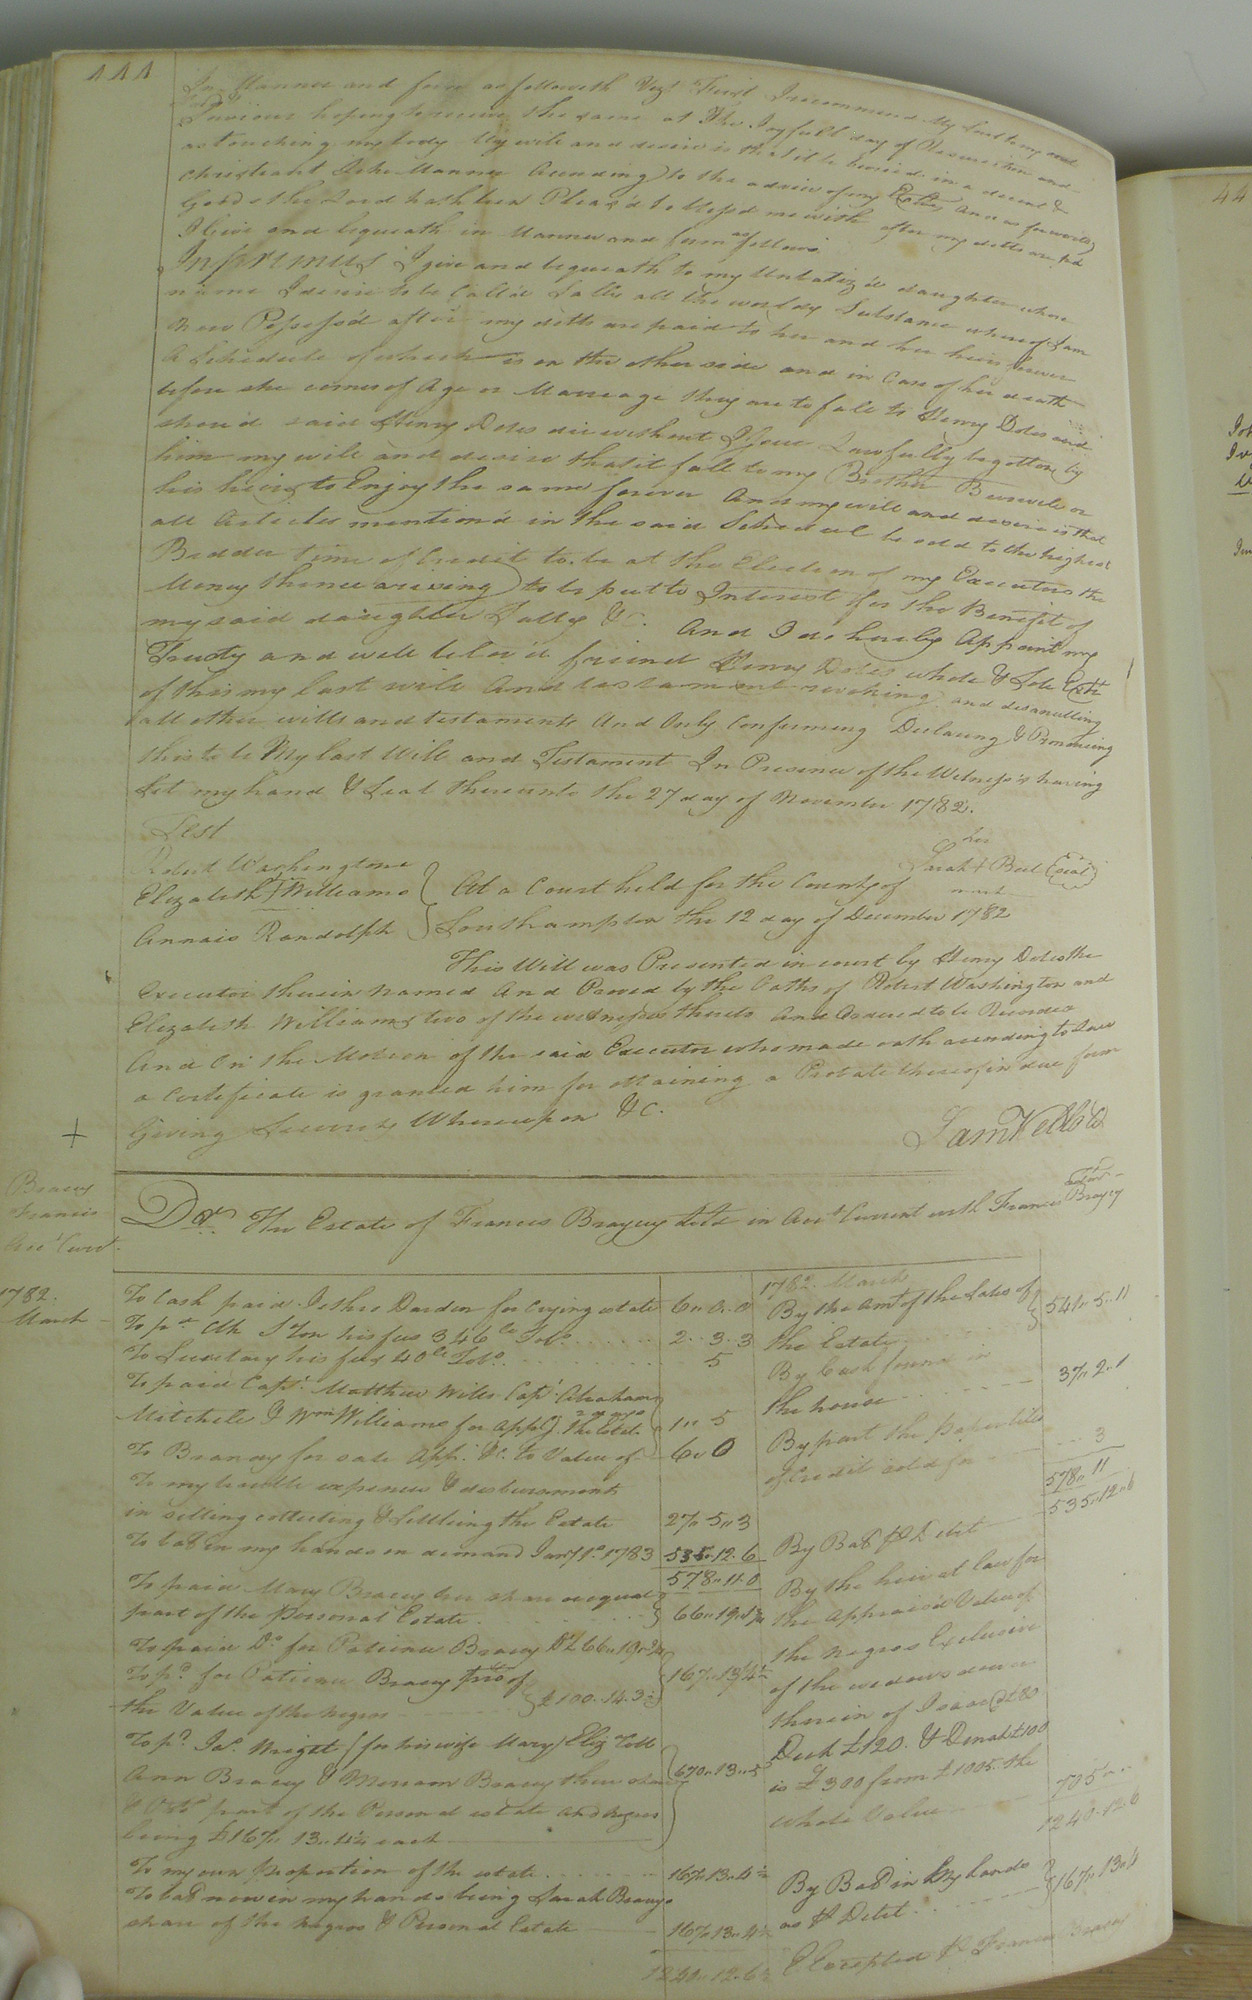 444
In Manner and form as followeth Vizt First I recommend My Soul to my
Saviour hoping to receive the same at The Joyfull day of Resurrection and
as touching my body My will and desire is that it be buried in a decent &
Christiant Like Manner According to the advice of my Extrs And as for worldly
Goods the Lord hath been Pleas'd to bless'd me with after my debts are pd
I Give and bequeath in Manner and form as follows
I give and bequeath to my Unbatiz'd daughter whose
name I desire to be Call'd Sally all the worldy Substance whereof I am
now Possess'd after my debts are paid to her and her heirs forever
A Schedule of which is on the other side and in Case of her death
before she comes of Age or Marriage they are to fall to Henry Doles and
shou'd said Henry Doles die without Issue Lawfully begotten by
him my will and desire that it fall to my Brother or
his heirs to Enjoy the same forever And my will and desire is that
all Articles mention'd in the said be sold to the highest
Bedder time of Credit to be at the Election of my Executors the
Money thence arising to be put to Interest for the Benefit of
my said daughter Sally &C. And I do hereby Appoint my
Trusty and well belov'd friend Henry Doles whole & Sole Extr
of this my last will And testament revoking and disanulling
all other wills and testaments And Only Confirming Declaring & Pronouncing
this to be My last Will and Testament In Presence of the Witness's having
Set my hand & Seal thereunto the 27 day of November 1782.
Test
her
Robert Washingtone
Sarah + Bell (Seal)
Elizabeth + Williams
At a Court held for the County of
mark
Annais Randolph
Southampton the 12 day of December 1782
This Will was Presented in court by Henry Doles the
Executor therein Named And Proved by the Oaths of Robert Washington and
Elizabeth Williams two of the witnesses thereto And Ordered to be Recorded
And On the Motion of the said Executor who made oath according to Law
a Certificate is granted him for obtaining a Probate thereof in due form
Giving Security Whereupon &C.
Sam Kello
Bracey
Francis
Acct Curt.
Dr. The Estate of Francis Bracey decd in Acct Current with Francis Bracey
1782.
March
To Cash paid Jethro Darden for Crying estate 6 " 0 " 0
To pd Clk S ton his fees 346 lb Tobo. 2 . 3 . 3
To Secretary his fees 40 lb Tobo. 5
To paid Capt. Matthew Wills Capt. Abraham
Mitchell & Wm Williams for the Estate 1 " 5
To Brandy for sale App. &c. to Value of 6 " 0
To my trouble expences & disbursments
in selling collecting & Settling the Estate 27 " 5 " 3
To bal in my hands on demand Jany 1st. 1783 535 . 12 . 6
578 " 11 . 0
To paid Mary Bracey her share or equal
part of the Personal Estate 66 " 19 "
To paid Do for Patience Bracey Do £66 " 19 "
To pd for Patience Bracey of
the Value of the negros £100 . 14 . 3
167 . 13 . 4
To pd. Jas. Wright (for his wife Mary) Eliz
Ann Bracey & Meriam Bracey their shares
part of the Personal estate and negros
being £167 " 13 " 4 each
670 " 13 " 5
To my own Proportion of the estate 167 " 13 " 4
To bal now in my hands being Sarah Braceys
share of the negros & Personal Estate 167 " 13 " 4
1240 " 12 . 6
1782. March
By the Amt of the Sales of
the Estate 541 " 5 " 11
By Cash found in
the house 37 " 2 " 1
By part the Paper bills
of Credit sold for 3
578 " 11
By Bal P Debt 535 " 12 " 6
By the heir at law for
the Appraisd Value of
the Negros Exclusive
of the widows dower
therein of Isaac @ £80
£120. & £100
is £300 from £1005. the
whole Value 705 " .
1240 . 12 . 6
By Bal in My hands
as P Debit 167 " 13 " 4
Excepted Pr Francis Bracey